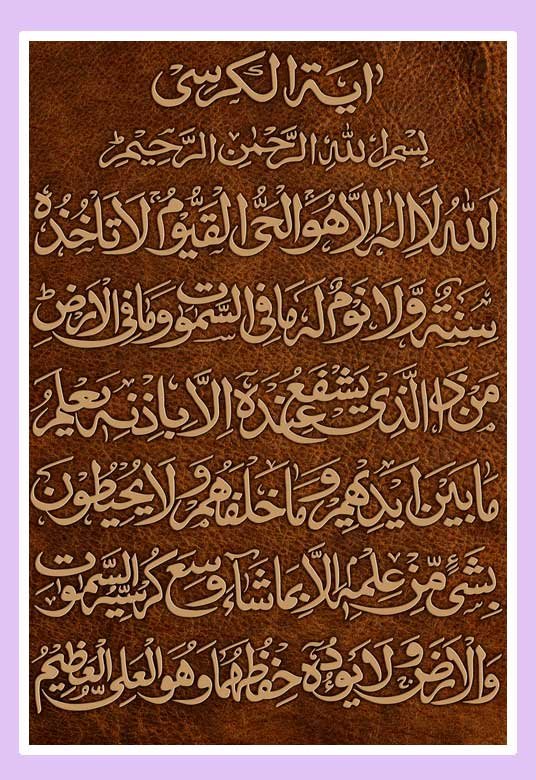 اٰیة الکرسی
بِسْمِ اللهِ الرَّحْمٰنِ الرَّحِیْمِ
اَللهُ لَا اِلٰهَ اِلَّا هُوَ الْحَیُّ الْقَیُّوْمُ لَا تَاْخُذُهٗ
سِنَةٌ وَّلَا نَوْمٌ لَهٗ مَا فِی السَّمٰوٰتِ وَمَا فِی الْاَرْضِ
مَنْ ذَا الَّذِیْ یَشْفَعُ عِنْدَهٗ اِلَّا بِاِذْنِهٖ یَعْلَمُ
مَا بَیْنَ اَیْدِیْهِمْ وَمَا خَلْفَهُمْ وَلَا یُحِیْطُوْنَ
بِشَیْءٍ مِّنْ عِلْمِهٖ اِلَّا بِمَا شَآءَ وَسِعَ كُرْسِیُّهُ السَّمٰوٰتِ
وَالْاَرْضَ وَلَا یَـُٔوْدُهٗ حِفْظُهُمَا وَهُوَ الْعَلِیُّ الْعَظِیْمُ